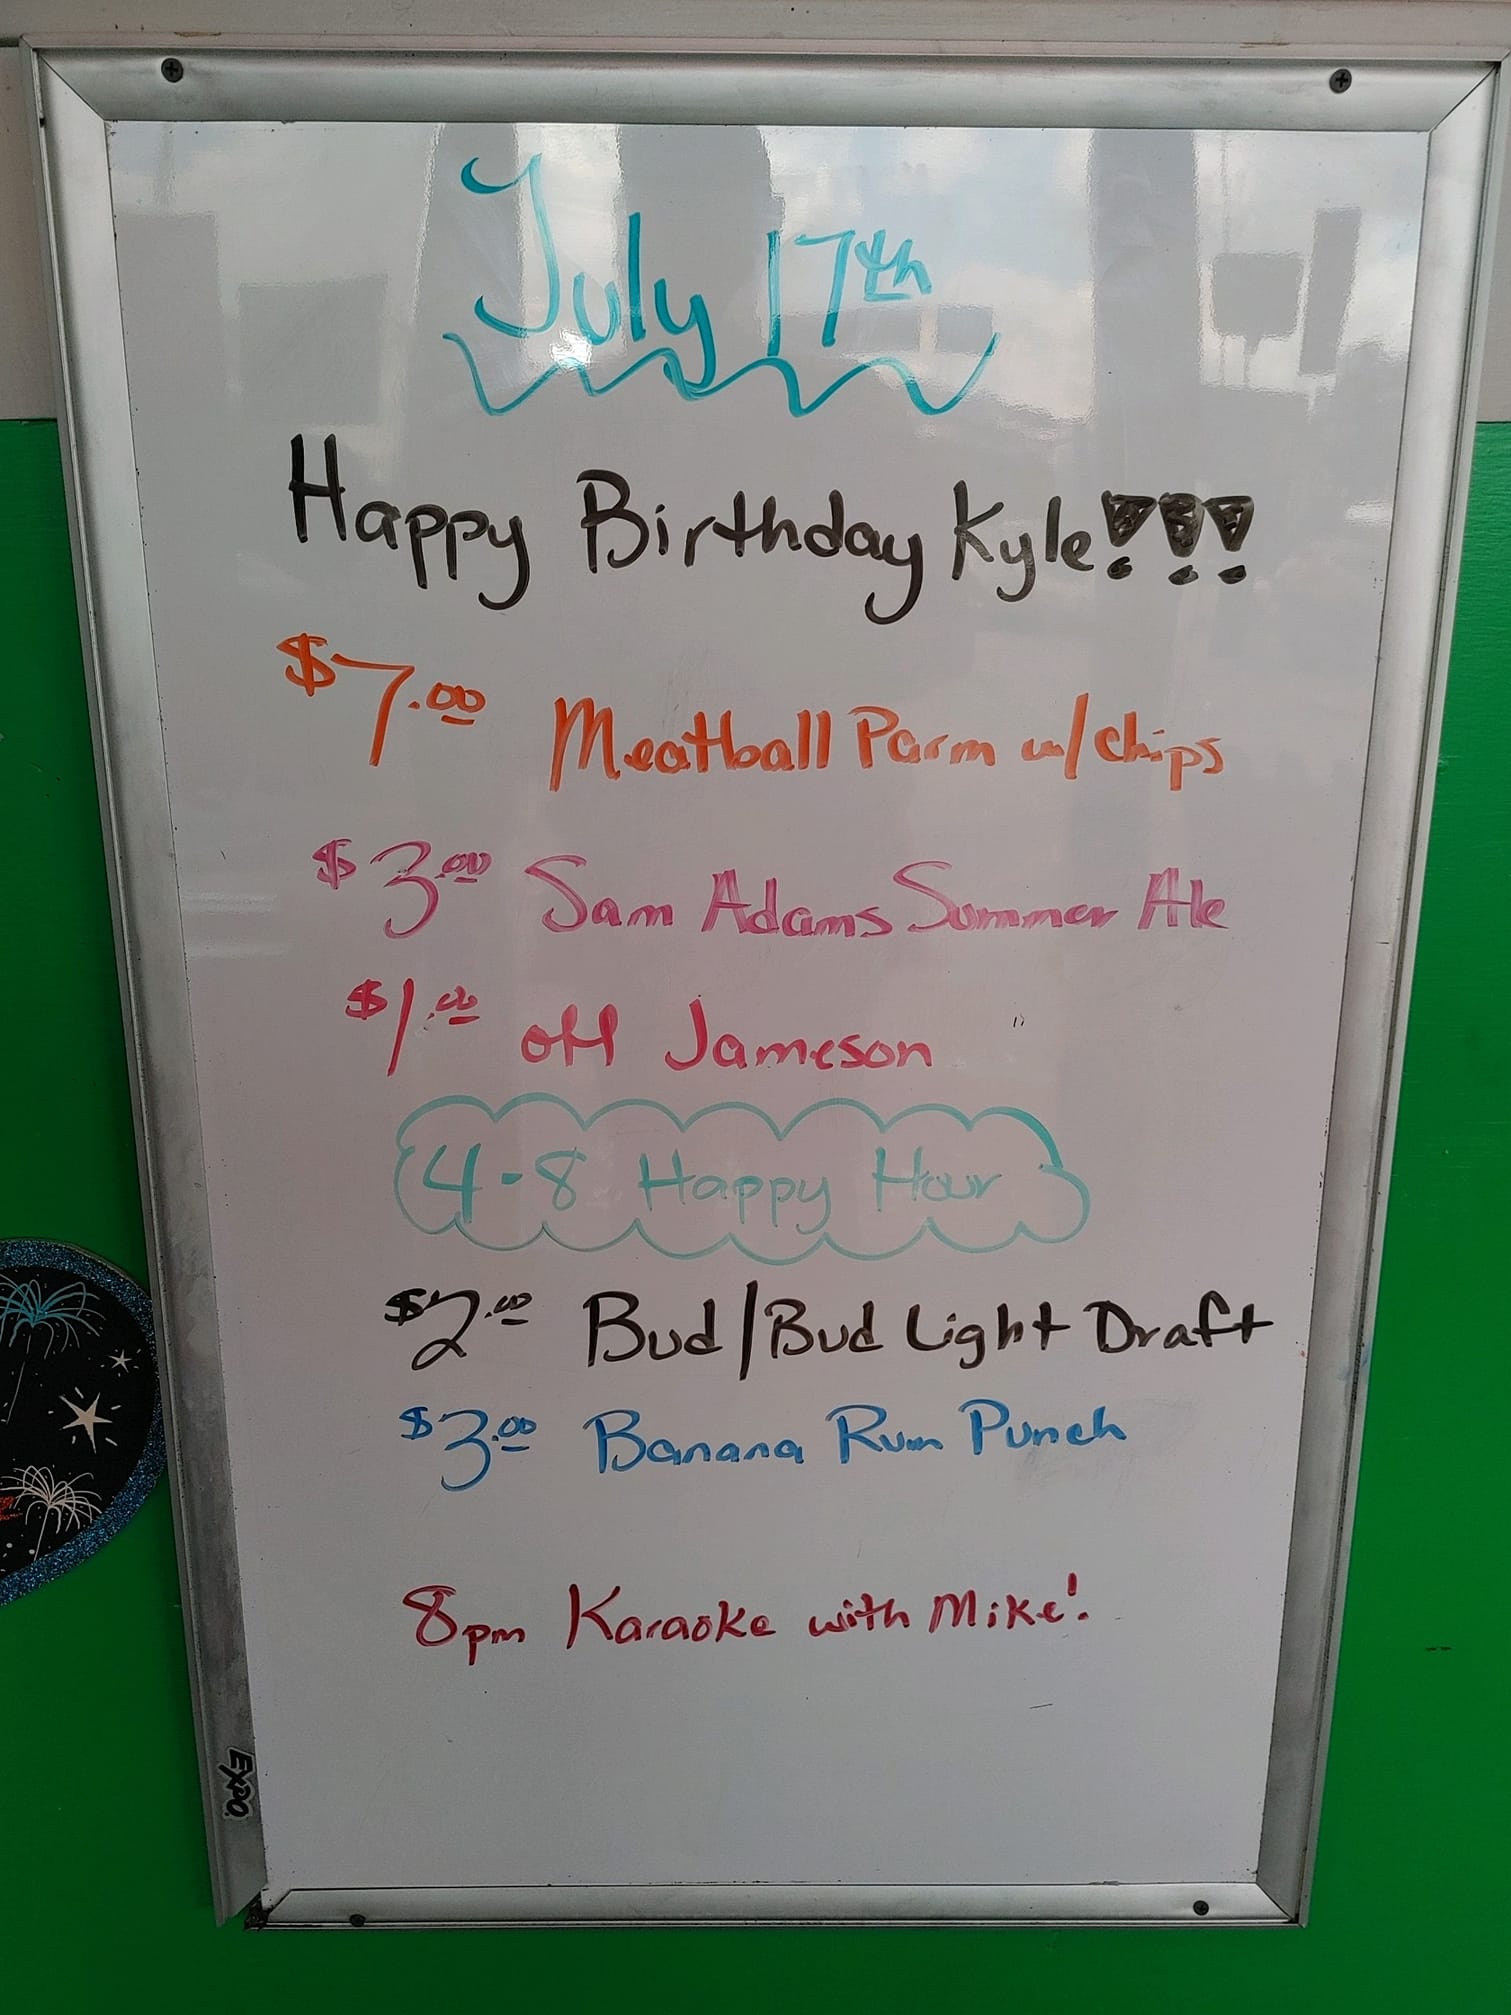 July 17th
Happy Birthday Kyle!!!
$7.00 Meatball Parm w/chips
$3.00 Sam Adams Summer Ale
$1.00 off Jameson
4-8 Happy Hour
$2.00 Bud/Bud Light Draft
$3.00 Banana Rum Punch
8pm Karaoke with Mike!
EXPO